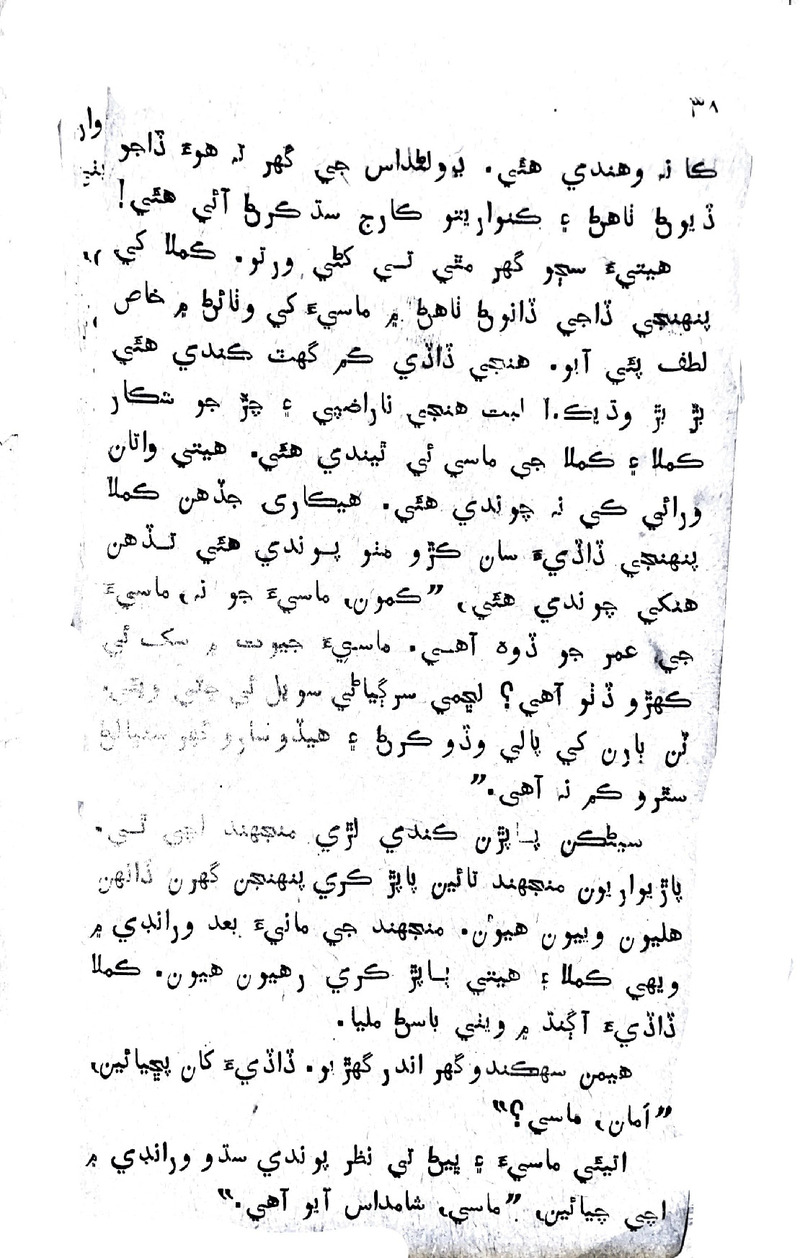 ٣٨
وار
ڪا نہ وهندي هئي. ڊولڻداس جي گهر تہ هوءَ ڏاجو
ڏيوڻ ٺاهڻ ۽ ڪنواريتو ڪارج سڌ ڪرڻ آئي هئي!
هيتيءَ سڄو گهر مٿي تي کڻي ورتو. ڪملا کي
پنهنجي ڏاجي ڏانوڻ ٺاهڻ ۾ ماسيءَ کي وٺائڻ ۾ خاص
لطف پئي آيو. هنجي ڏاڏي ڪم گهٽ ڪندي هئي
بڙ بڙ وڌيڪ. البت هنجي ناراضپي ۽ چڙ جو شڪار
ڪملا ۽ ڪملا جي ماسي ئي ٿيندي هئي. هيتي واتان
ورائي ڪي نہ چوندي هئي. هيڪاري جڏهن ڪملا
پنهنجي ڏاڏيءَ سان ڪڙو مٺو پوندي هئي تڏهن
هنکي چوندي هئي، ”ڪمون، ماسيءَ جو نہ، ماسيءَ
جي عمر جو ڏوهہ آهي. ماسيءَ جيوت ۾ سک ئي
ڪهڙو ڏٺو آهي؟ لڇمي سرگياڻي سويل ئي
ٽن ٻارن کي پالي وڏو ڪرڻ ۽ هيڏو سارو گهر سنڀالڻ
سٿرو ڪم نہ آهي.”
سيڻڪن پاپڙن ڪندي لڙي منجهند اچي ٿي.
پاڙيواريون منجهند تائين پاپڙ ڪري پنهنجن گهرن ڏانهن
هليون وييون هيون. منجهند جي مانيءَ بعد ورانڊي ۾
ويهي ڪملا ۽ هيتي پاپڙ ڪري رهيون هيون. ڪملا
ڏاڏيءَ آڳنڌ ۾ ويٺي باسڻ مليا.
هيمن سهڪندو گهر اندر گهڙيو. ڏاڏيءَ کان پڇيائين،
”امان، ماسي؟“
اتيئي ماسيءَ ۽ ڀيڻ تي نظر پوندي سڌو ورانڊي ۾
اچي چيائين، ”ماسي، شامداس آيو آهي.“